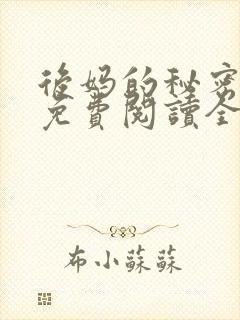 後妈的秘密
免費閱讀全
布小蘇蘇